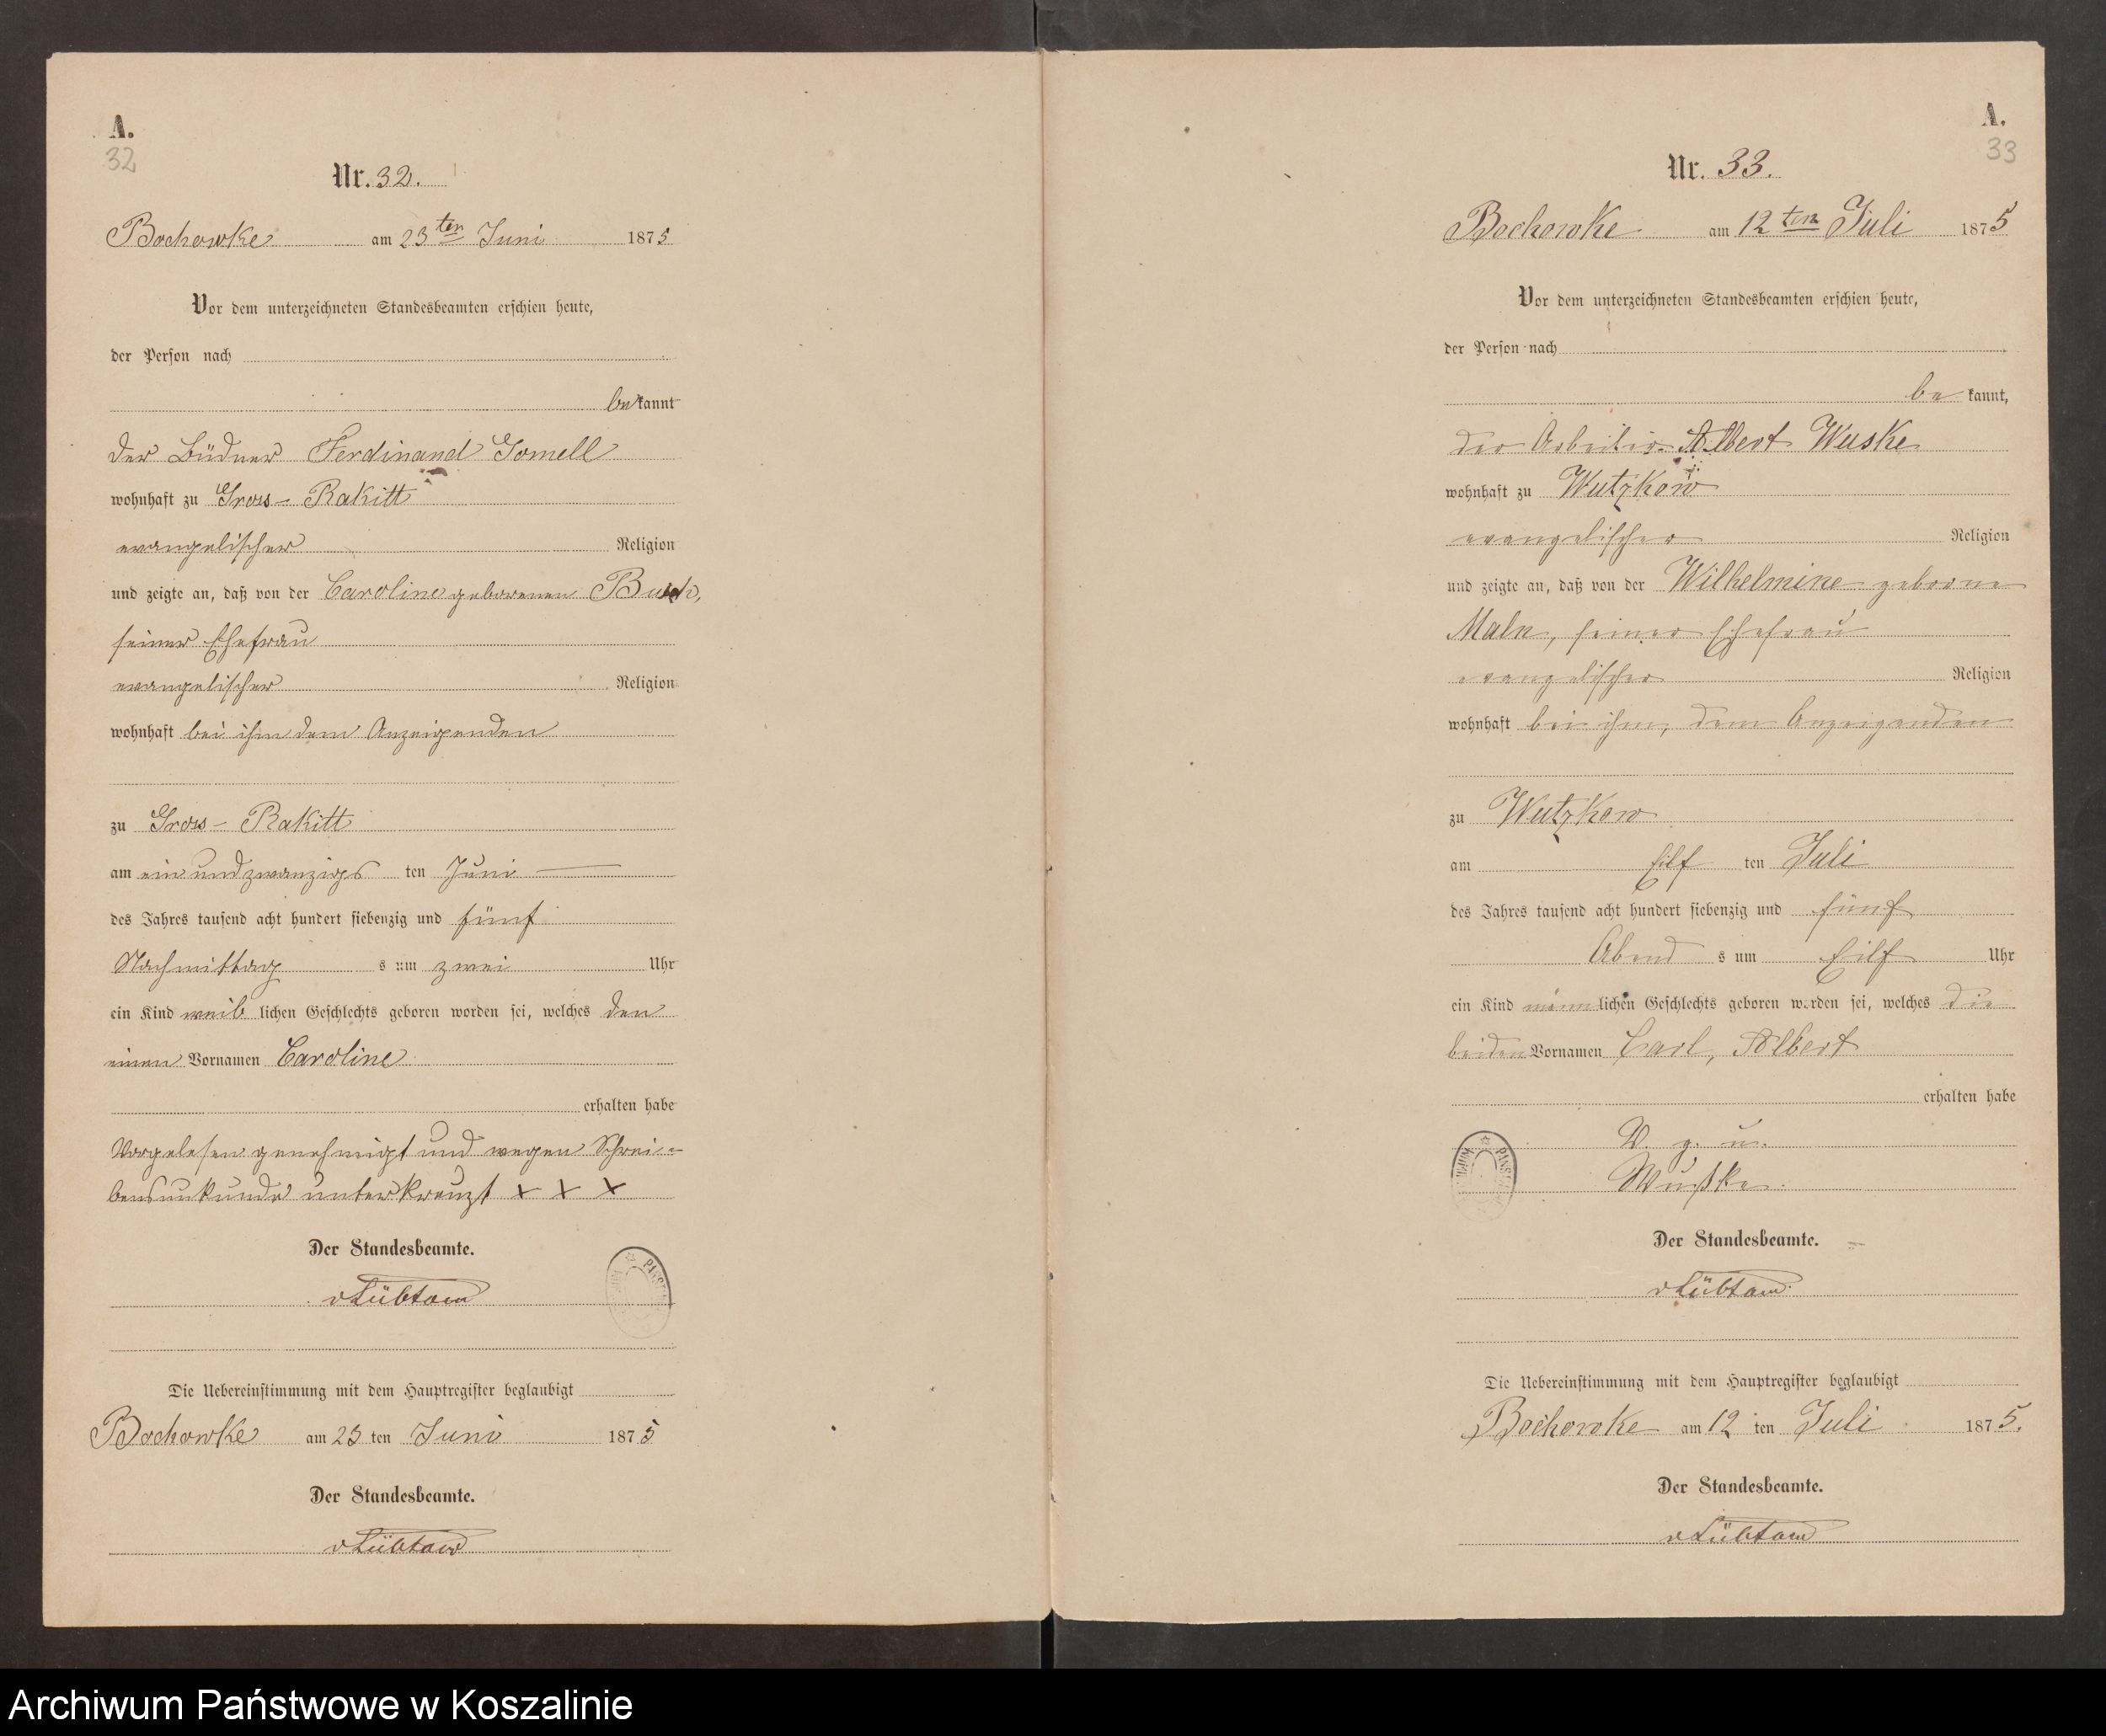 A.
32
Nr. 32.
Bochowke am 23ten Juni 1875
Vor dem unterzeichneten Standesbeamten erschien heute,
der Person nach
bekannt
der Büdner Ferdinand Gomell
wohnhaft zu Gross-Rakitt
evangelischer Religion
und zeigte an, daß von der Caroline geborenen
seiner Ehefrau
evangelischer Religion
wohnhaft bei ihm dem Anzeigenden
zu Gross-Rakitt
am ein und zwanzigs ten Juni
des Jahres tausend acht hundert siebenzig und fünf
Nachmittag s um zwei Uhr
ein Kind weiblichen Geschlechts geboren worden sei, welches den
einen Vornamen Caroline
erhalten habe
Vorgelesen genehmigt und wegen Schrei-
bensunkunde unterkreuzt + + +
Der Standesbeamte.
vLübtow
Die Uebereinstimmung mit dem Hauptregister beglaubigt
Bochowke am 23 ten Juni 1875
Der Standesbeamte.
vLübtow
A.
33
Nr. 33.
Bochowke am 12ten Juli 1875
Vor dem unterzeichneten Standesbeamten erschien heute,
der Person nach
bekannt,
der Arbeiter Albert Wuske
wohnhaft zu Wutzkow
evangelischer Religion
und zeigte an, daß von der Wilhelmine geborne
seiner Ehefrau
evangelischer Religion
wohnhaft bei ihm, dem Anzeigenden
zu Wutzkow
am Eilf ten Juli
des Jahres tausend acht hundert siebenzig und fünf
Abend s um Eilf Uhr
ein Kind männlichen Geschlechts geboren worden sei, welches die
beiden Vornamen Carl, Albert
erhalten habe
V. g. u.
Wußke.
Der Standesbeamte.
vLübtow
Die Uebereinstimmung mit dem Hauptregister beglaubigt
Bochowke am 12 ten Juli 1875.
Der Standesbeamte.
vLübtow
Archiwum Państwowe w Koszalinie